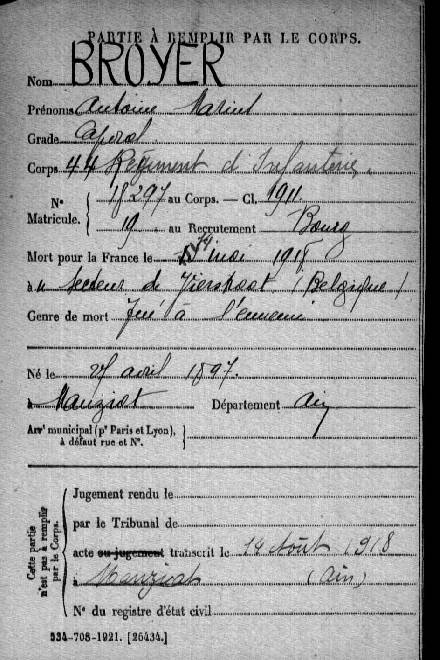 PARTIE À REMPLIR PAR LE CORPS.
Nom BROYER
Prénoms Antoine Marius
Grade Caporal
Corps 44 Régiment d'Infanterie.
N° Matricule. 18297 au Corps. — Cl. 1911
19 au Recrutement Bourg
Mort pour la France le mai 1918
à u Secteur de (Belgique)
Genre de mort Tué à l'ennemi
Né le avril 1897.
à Manziat Département Ain
Arrt municipal (pr Paris et Lyon), à défaut rue et N°.
Cette partie n'est pas à remplir par le Corps.
Jugement rendu le
par le Tribunal de
acte ou jugement transcrit le 14 Août 1918
à Manziat (Ain)
N° du registre d'état civil
534-708-1921. [26434.]